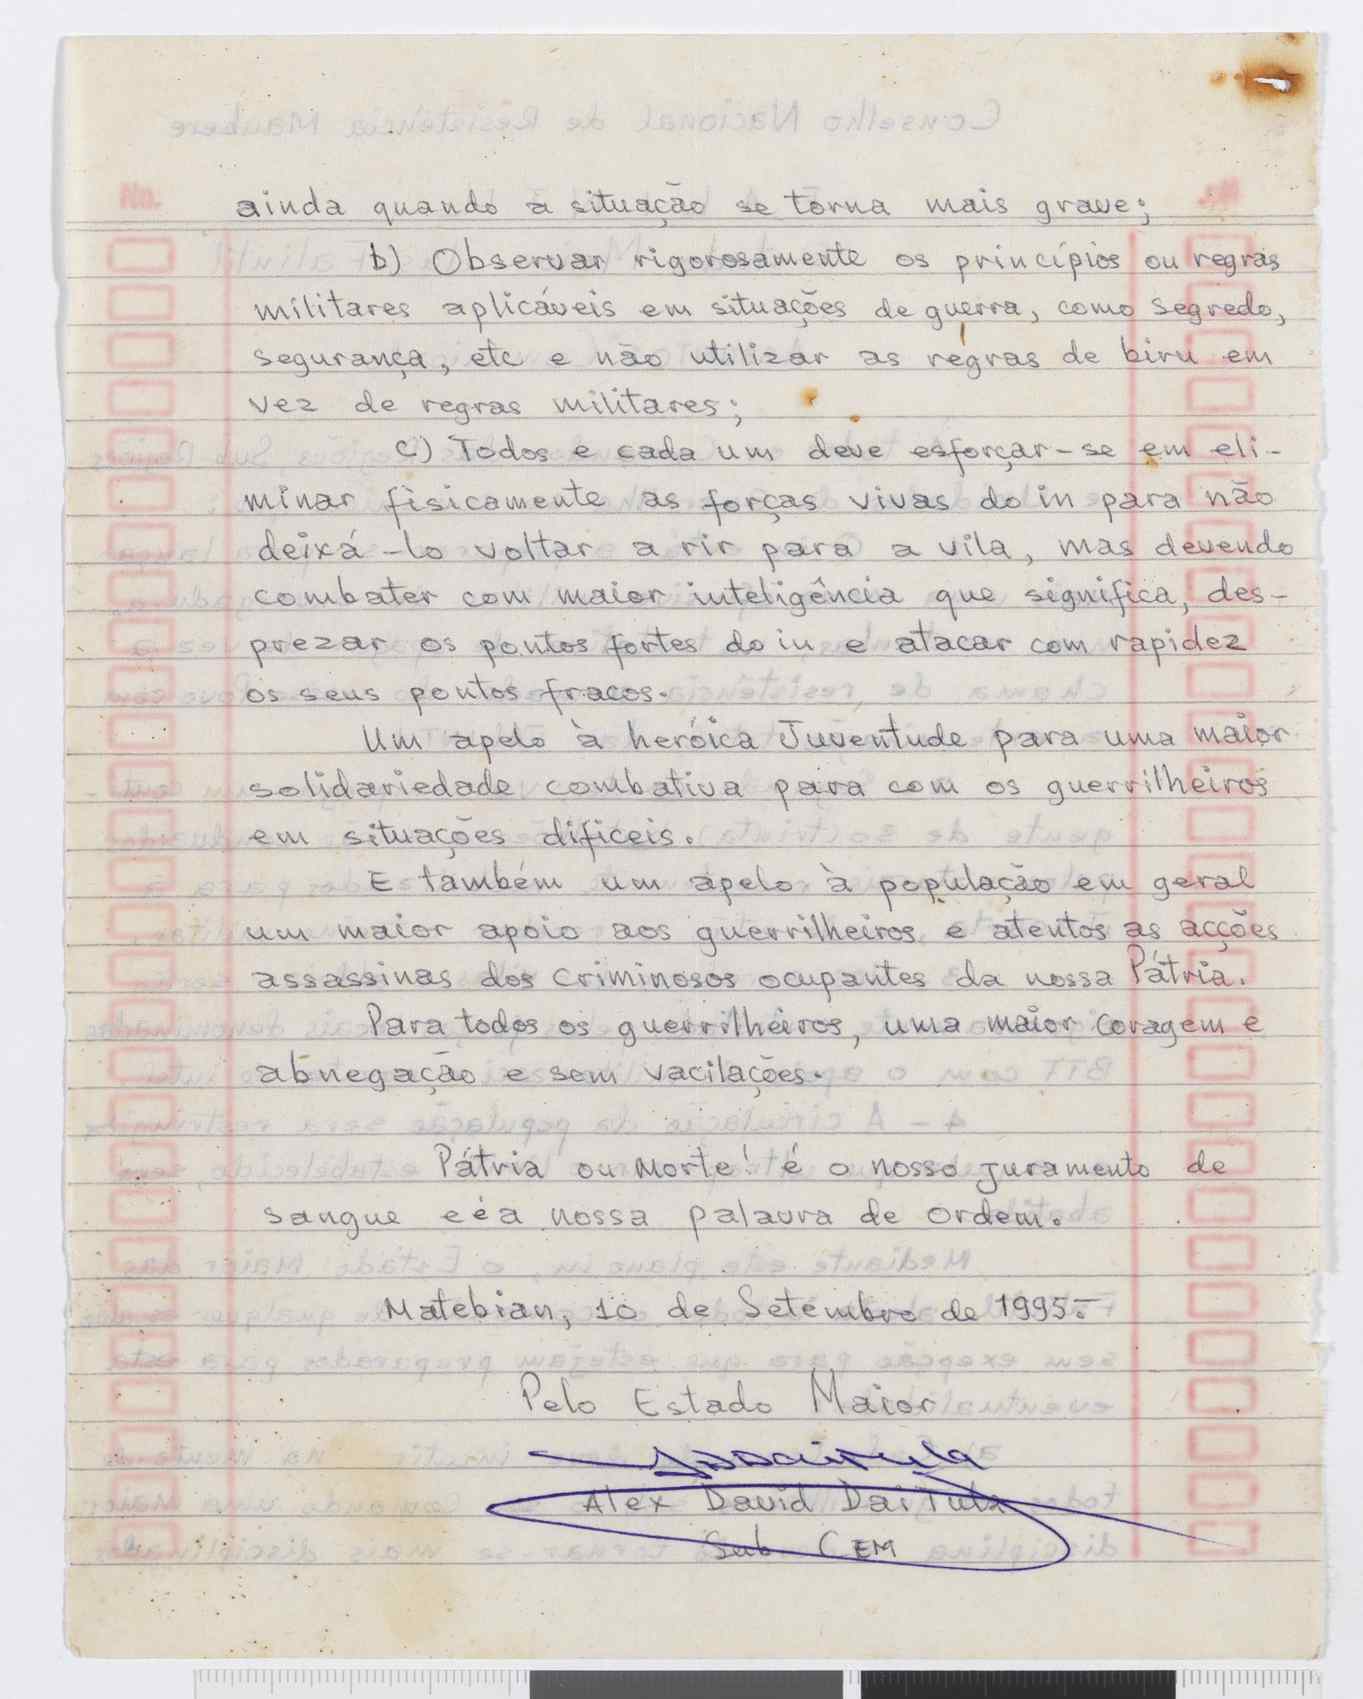 ainda quando a situação se torna mais grave;
b) Observar rigorosamente os princípios ou regras
militares aplicáveis em situações de guerra, como segredo,
segurança, etc e não utilizar as regras de biru em
vez de regras militares;
c) Todos e cada um deve esforçar-se em eli-
minar fisicamente as forças vivas do in para não
deixá-lo voltar a rir para a vila, mas devendo
combater com maior inteligência que significa, des-
prezar os pontos fortes do in e atacar com rapidez
os seus pontos fracos.
Um apelo à heróica Juventude para uma maior
solidariedade combativa para com os guerrilheiros
em situações dificeis.
E também um apelo à população em geral
um maior apoio aos guerrilheiros e atentos as acções
assassinas dos criminosos ocupantes da nossa Pátria.
Para todos os guerrilheiros, uma maior coragem e
abnegação e sem vacilações.
Pátria ou Morte! é o nosso juramento de
sangue e é a nossa palavra de ordem.
Matebian, 10 de Setembro de 1995.-
Pelo Estado Maior
Alex David Daitula
Sub CEM